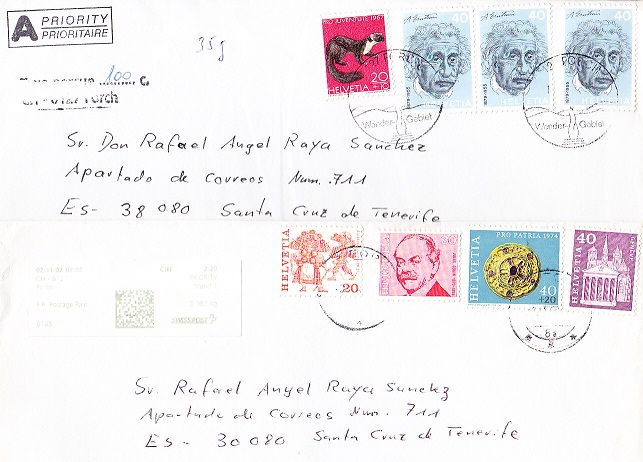 A PRIORITY
PRIORITAIRE
35g
100
PRO JUVENTUTE 1967
20
+10
HELVETIA
A. Einstein
40
1879-1955
HELVETIA
A. Einstein
40
HELVETIA
40
HELVETIA
Wander-Gebiet
Wander-Gebiet
Sr. Don Rafael Angel Raya Sanchez
Apartado de Correos Num. 711
ES- 38 080 Santa Cruz de Tenerife
CHF 2.20
P.P. Postage Paid
SWISSPOST
HELVETIA
20
HELVETIA
PRO PATRIA 1974
HELVETIA
40
+20
40
HELVETIA
Sr. Rafael Angel Raya Sanchez
Apartado de Correos Num. 711
ES- 30080 Santa Cruz de Tenerife